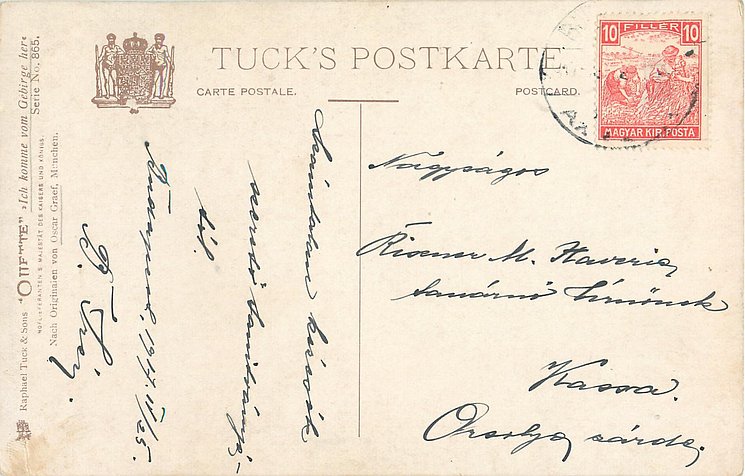 Raphael Tuck & Sons "OILETTE" »Ich komme vom Gebirge her«
Serie No. 865.
HOFLIEFERANTEN S. MAJESTÄT DES KAISERS UND KÖNIGS.
Nach Originalen von Oscar Graef, München.
TUCK'S POSTKARTE
CARTE POSTALE.
POSTCARD.
10 FILLÉR 10
MAGYAR KIR. POSTA
kézcsók
szerető tanítványá-
tól.
Budapest, IV/25.
Nagyságos
M. Xaveria
tanárnő Úrnőnek
Kassa.
Orsolya zárda.